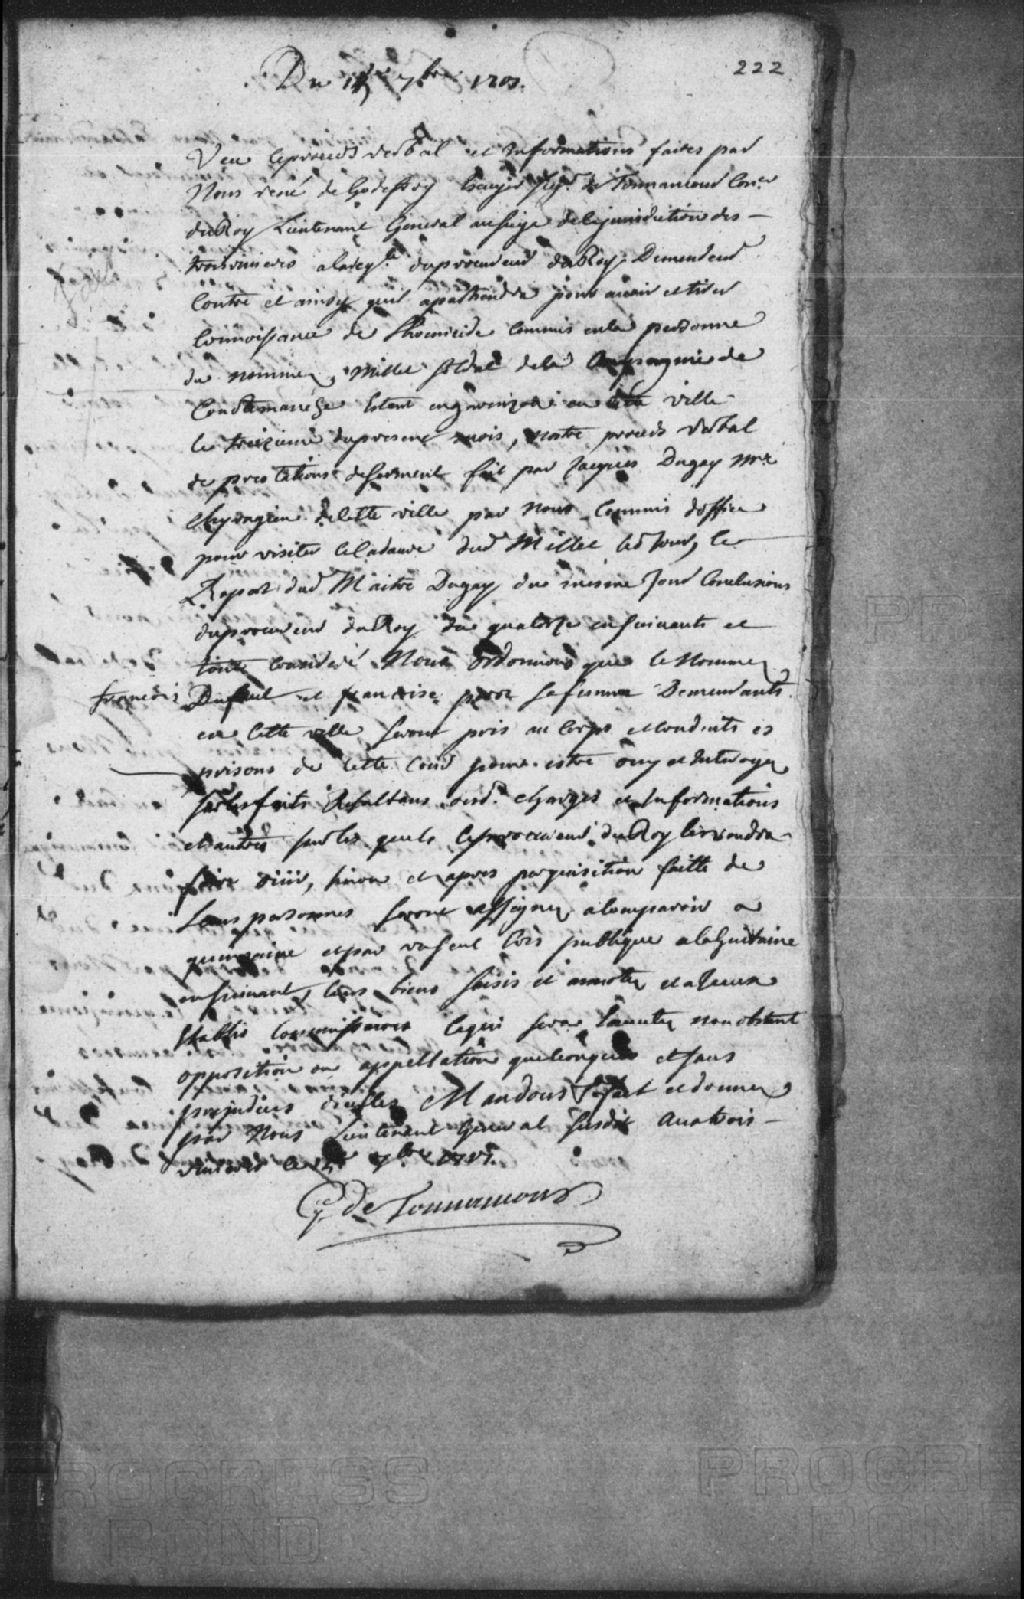 222
Du 7bre
Veu le proceds verbal et Informations faites par
Nous rené de Godefroy Escuyer Sgr de Tonnancour Conser
du Roy Lieutenant General au siege de la jurisdiction des
troisrivieres a la reqte du procureur du Roy Demandeur
Contre et ainsy quil apartiendra pour avoir et tirer
Connoissance de l'homicide Commis en la personne
du nommez Millet soldat de la Compagnie de
estant en garnison en cette ville
le treizieme du present mois, nostre proceds verbal
de prestations de serment fait par Jacques Dugay Mre
chyrurgien de cette ville par nous Commis d'office
pour visiter le Cadavre dud Millet led Jour, le
Raport dud Maitre Dugay du mesme Jour Conclusions
du procureur du Roy du quatorze ensuivants et
tout Consideré Nous Ordonnons que le Nommez
françois et francoise sa femme Demeurants
en cette ville seront pris au Corps et Conduits es
prisons de cette Cour pour estre ouy et Interrogez
sur les faits Resultans desd. charges et Informations
et autres sur les quels le procureur du Roy les voudra
faire ouir, sinon et apres perquisition faitte de
Leurs personnes seront assignez a Comparoir a
quinzaine et par un seul Cris publique a la huitaine
ensuivant, leurs biens saisis et annotez et a Iceux
establis Commissaires Ce qui sera Executez nonobstant
opposition ou appellation quelconques et sans
prejudices d'icelles Mandons fait et donnez
par Nous Lieutenant General susdit Aux trois
rivieres le 7bre
de Tonnancour
PROGRESS
BOND
PROGR
BON